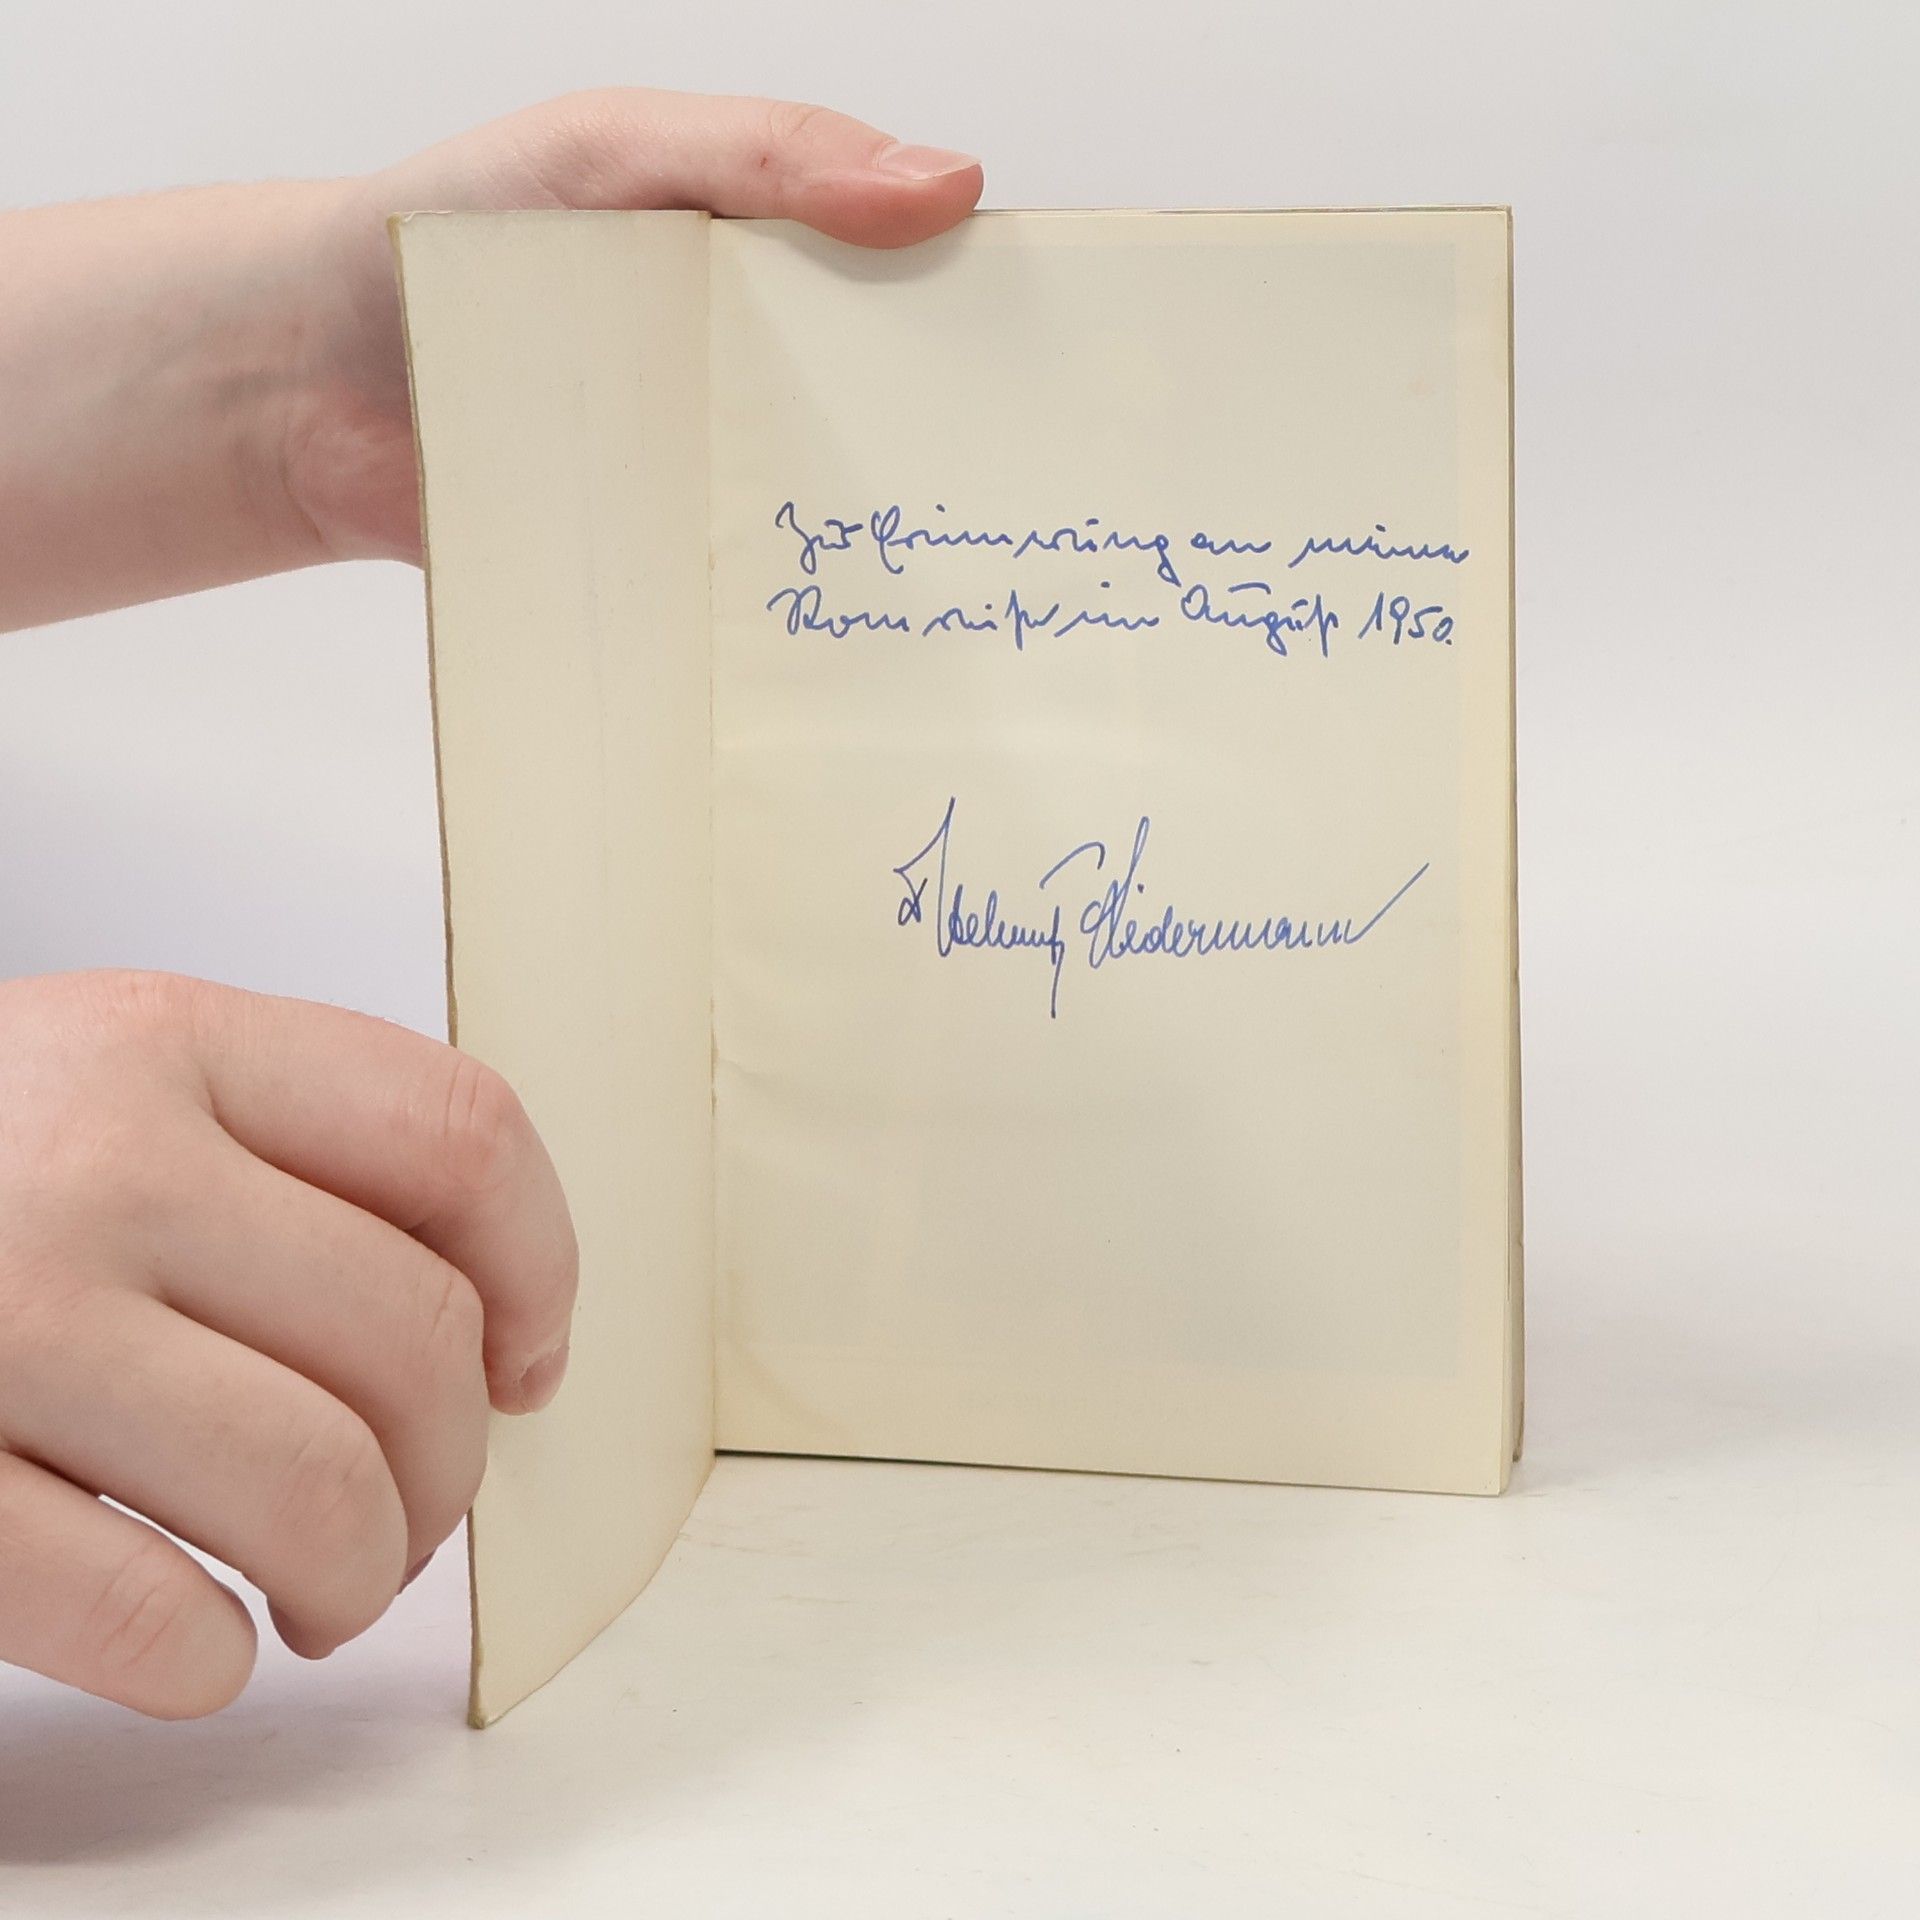 Zur Erinnerung an meine
Romreise im August 1950.
Dr Helmut Niedermann